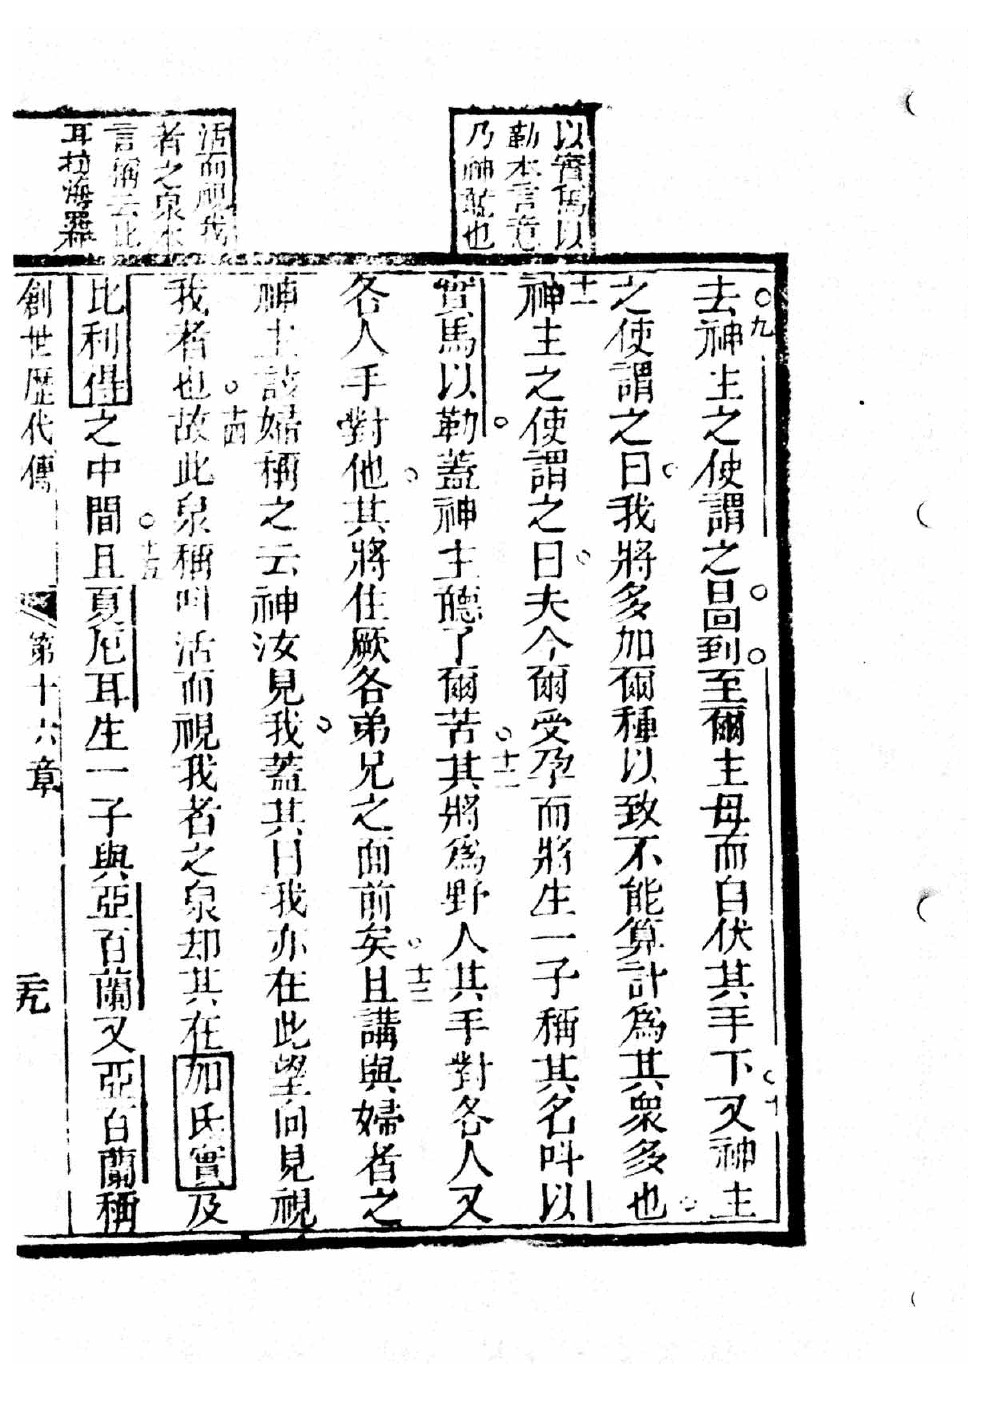 以實馬以
勒本言意
乃神聽也
活而視我
者之泉本
言稱云比
耳拉海羅
○九
去神主之使謂之曰○回到○至爾主母而自伏其手下○十又神主
之使謂之曰○我將多加爾種以致不能算計爲其衆多也○
十一
神主之使謂之曰○夫今爾受孕而將生一子稱其名呌以
實馬以勒○蓋神主聽了爾苦○十二其將爲野人其手對各人又
各人手對他○其將住厥各弟兄之面前矣○十三且講與婦者之
神主該婦稱之云神汝見我○蓋其曰我亦在此望向見視
我者也○十四故此泉稱呌活而視我者之泉却其在加氏實及
比利得之中間○十五且夏厄耳生一子與亞百蘭又亞百蘭稱
創世歷代傳
第十六章
二十九